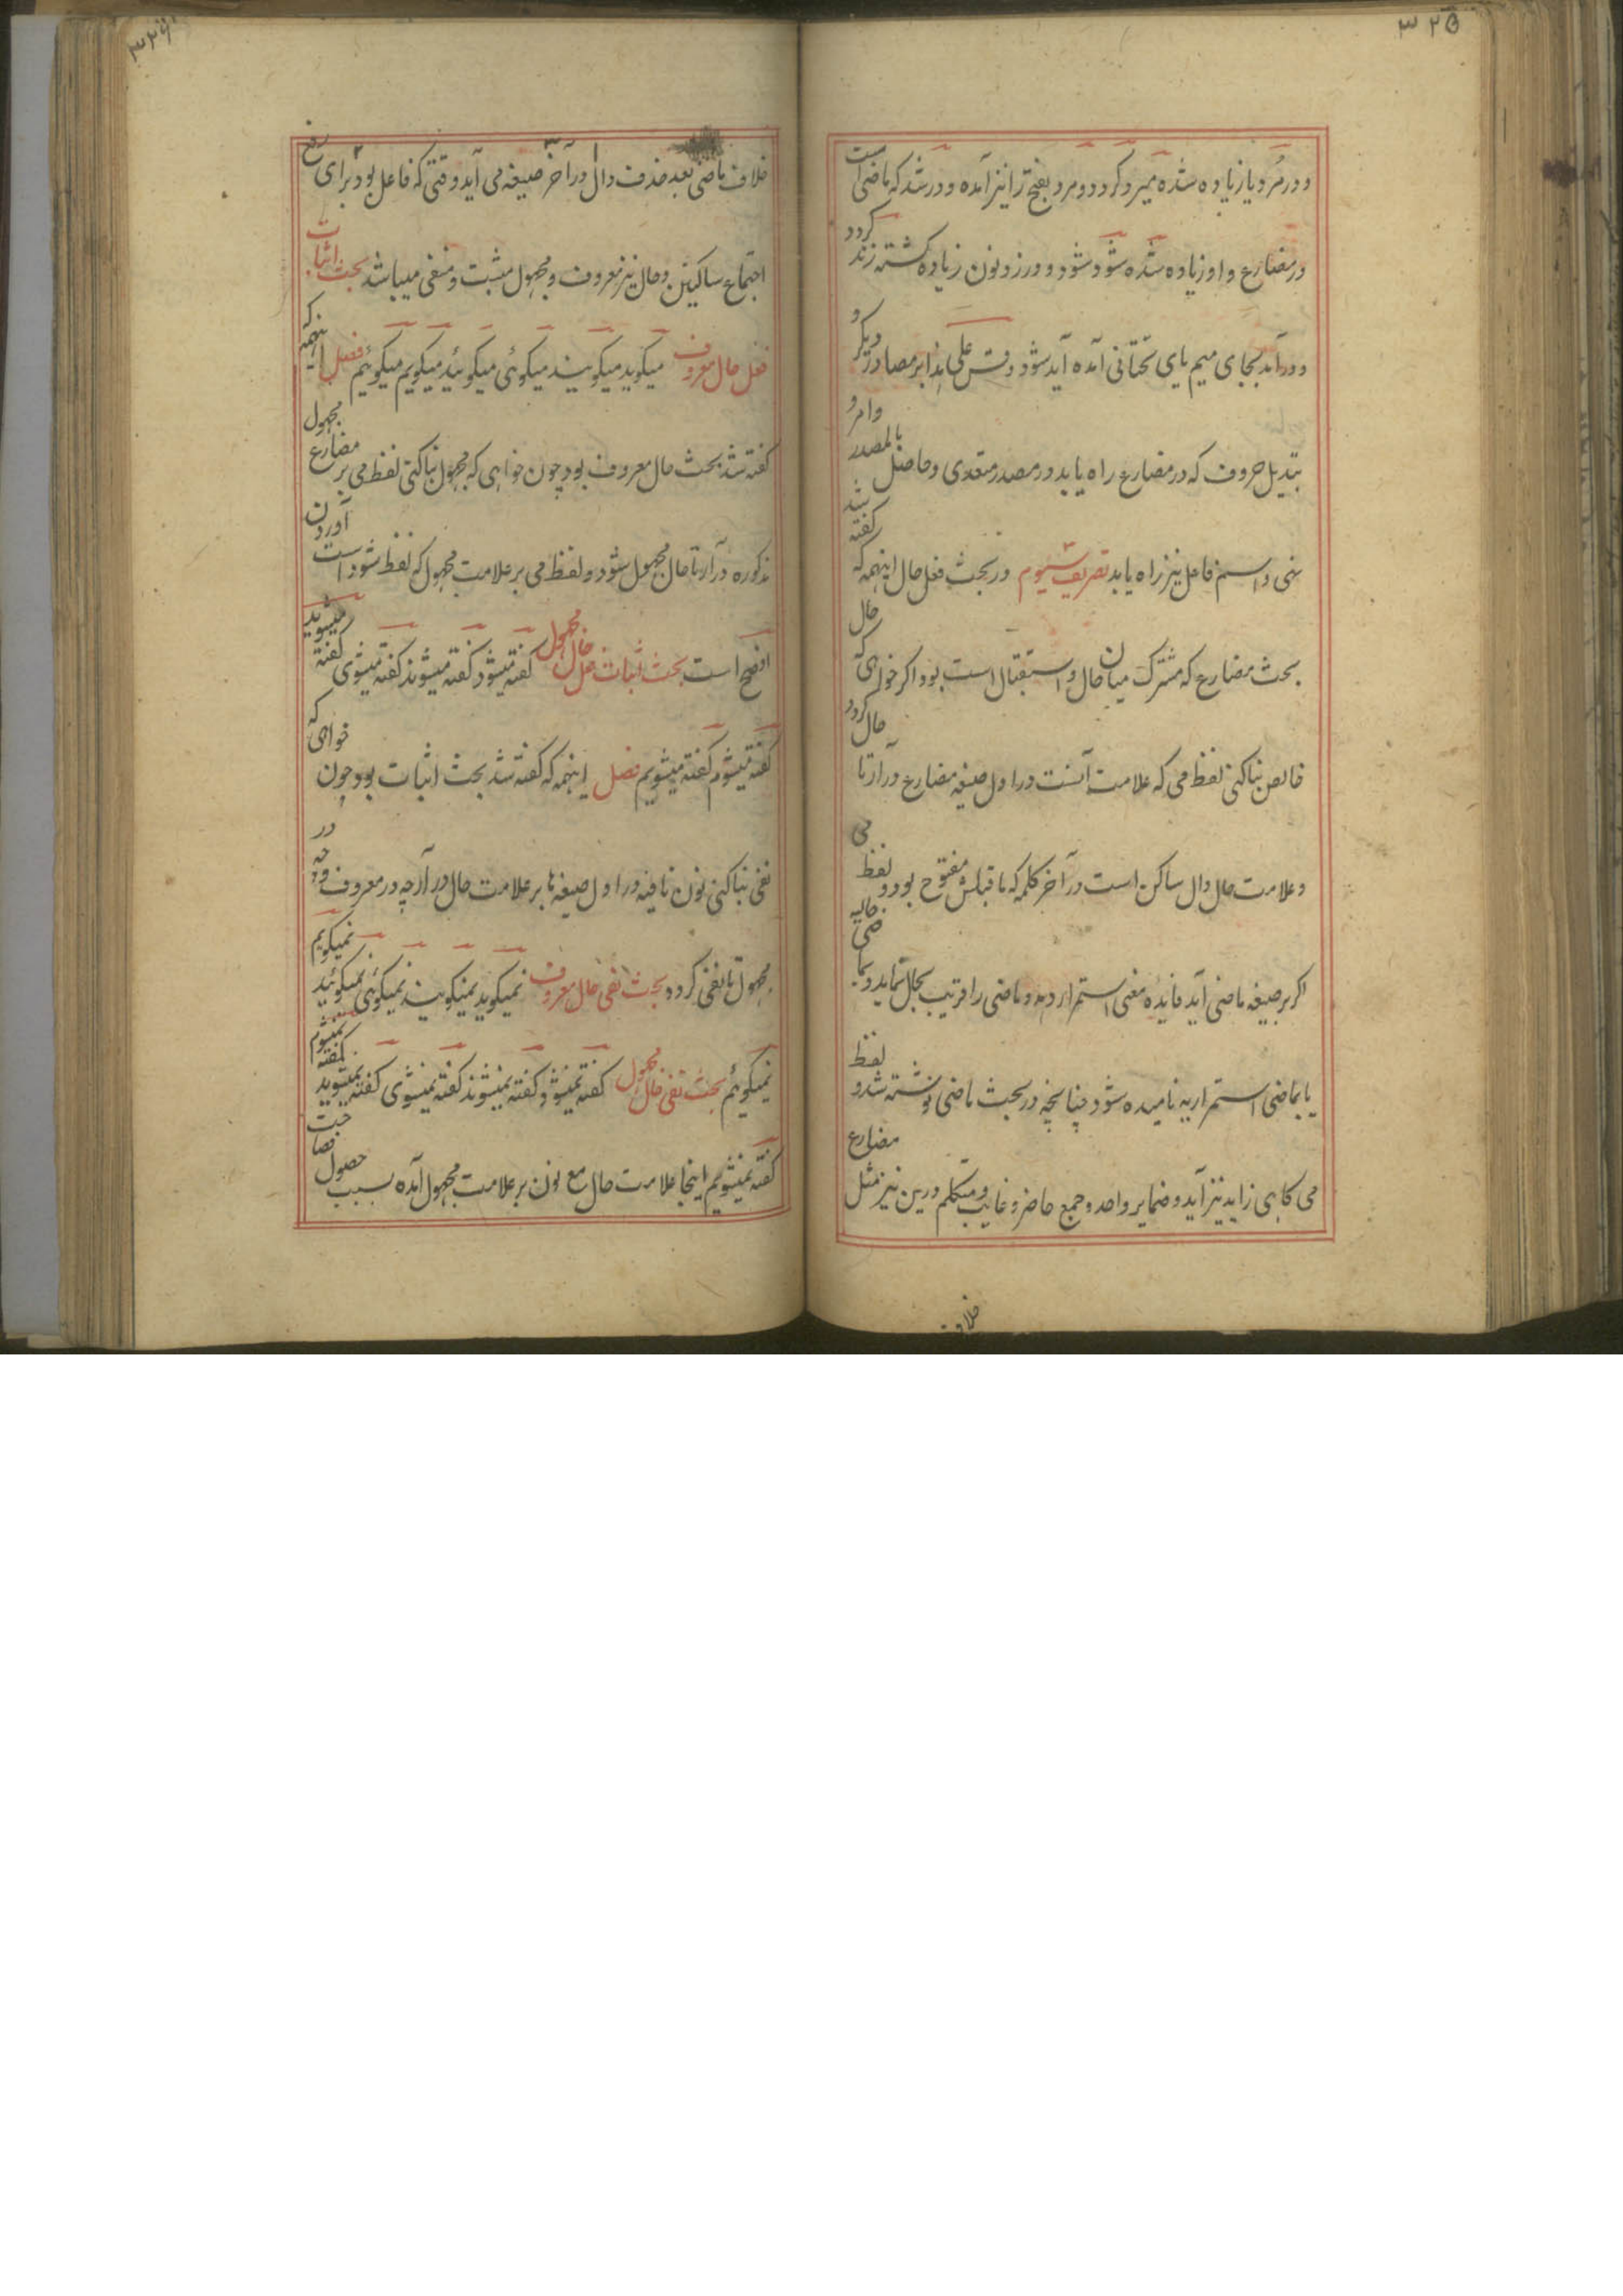 ۳۲۵
و در مُرد یا زیاده شده میرد و گردد و مرد بفتح زا نیز آمده و در شد که ماضی است
در مضارع واو زیاده شده شود شود و در زد نون زیاده گشته زند گردد
و در آمد بجای میم یای تحتانی آمده آید شود و قس علی هذا بر مصادر دیگر و
تبدیل حروف که در مضارع راه یابد در مصدر متعدی و حاصل بالمصدر و امر و
نهی و اسم فاعل نیز راه یابد تصریف سیوم در بحث فعل حال اینهمه که گفته شد
بحث مضارع که مشترک میان حال و استقبال است بود اگر خواهی که حال
خالص بنا کنی لفظ می که علامت آنست در اول صیغه مضارع در آر تا حال گردد
و علامت حال دال ساکن است در آخر کلمه که ماقبلش مفتوح بود و لفظ می
اگر بر صیغه ماضی آید فایده معنی استمرار دهد و ماضی را قریب بحال نماید و بماضی حالیه
یا بماضی استمراریه نامیده شود چنانچه در بحث ماضی نوشته شد و لفظ
می گاهی زاید نیز آید و ضمایر واحد و جمع حاضر و غایب و متکلم درین نیز مثل مضارع
خلاف
۳۲۶
خلاف ماضی بعد حذف دال در آخر صیغه می آید وقتی که فاعل بود برای رفع
اجتماع ساکنین و حال نیز معروف و مجهول مثبت و منفی میباشد بحث اثبات
فعل حال معروف میگوید میگویند میگوئی میگوئید میگویم میگوئیم فصل اینهمه که
گفته شد بحث حال معروف بود چون خواهی که مجهول بنا کنی لفظ می بر مضارع مجهول
مذکوره در آر تا حال مجهول شود و لفظ می بر علامت مجهول که لفظ شود است آوردن
افصح است بحث اثبات فعل حال مجهول گفته میشود گفته میشوند گفته میشوی گفته میشوید
گفته میشوم گفته میشویم فصل اینهمه که گفته شد بحث اثبات بود چون خواهی که
نفی بنا کنی نون نافیه در اول صیغه ها بر علامت حال در آر چه در معروف و چه در
مجهول تا نفی گردد بحث نفی حال معروف نمیگوید نمیگویند نمیگوئی نمیگوئید نمیگویم
نمیگوئیم بحث نفی حال مجهول گفته نمیشود گفته نمیشوند گفته نمیشوی گفته نمیشوید گفته نمیشوم
گفته نمیشویم اینجا علامت حال مع نون بر علامت مجهول آمده بسبب حصول فصاحت